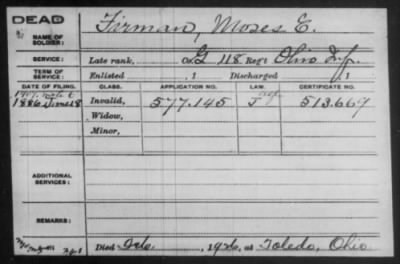 DEAD
NAME OF SOLDIER: Firman, Moses E.
SERVICE: Late rank, Co. G 118 Reg't Ohio Inf.
TERM OF SERVICE: Enlisted , 1 Discharged , 1
DATE OF FILING. CLASS. APPLICATION NO. LAW. CERTIFICATE NO.
1886 June 18 Invalid, 577.145 J 513.669
Widow,
Minor,
ADDITIONAL SERVICES:
REMARKS:
Died Feb. , 1926, at Toledo, Ohio